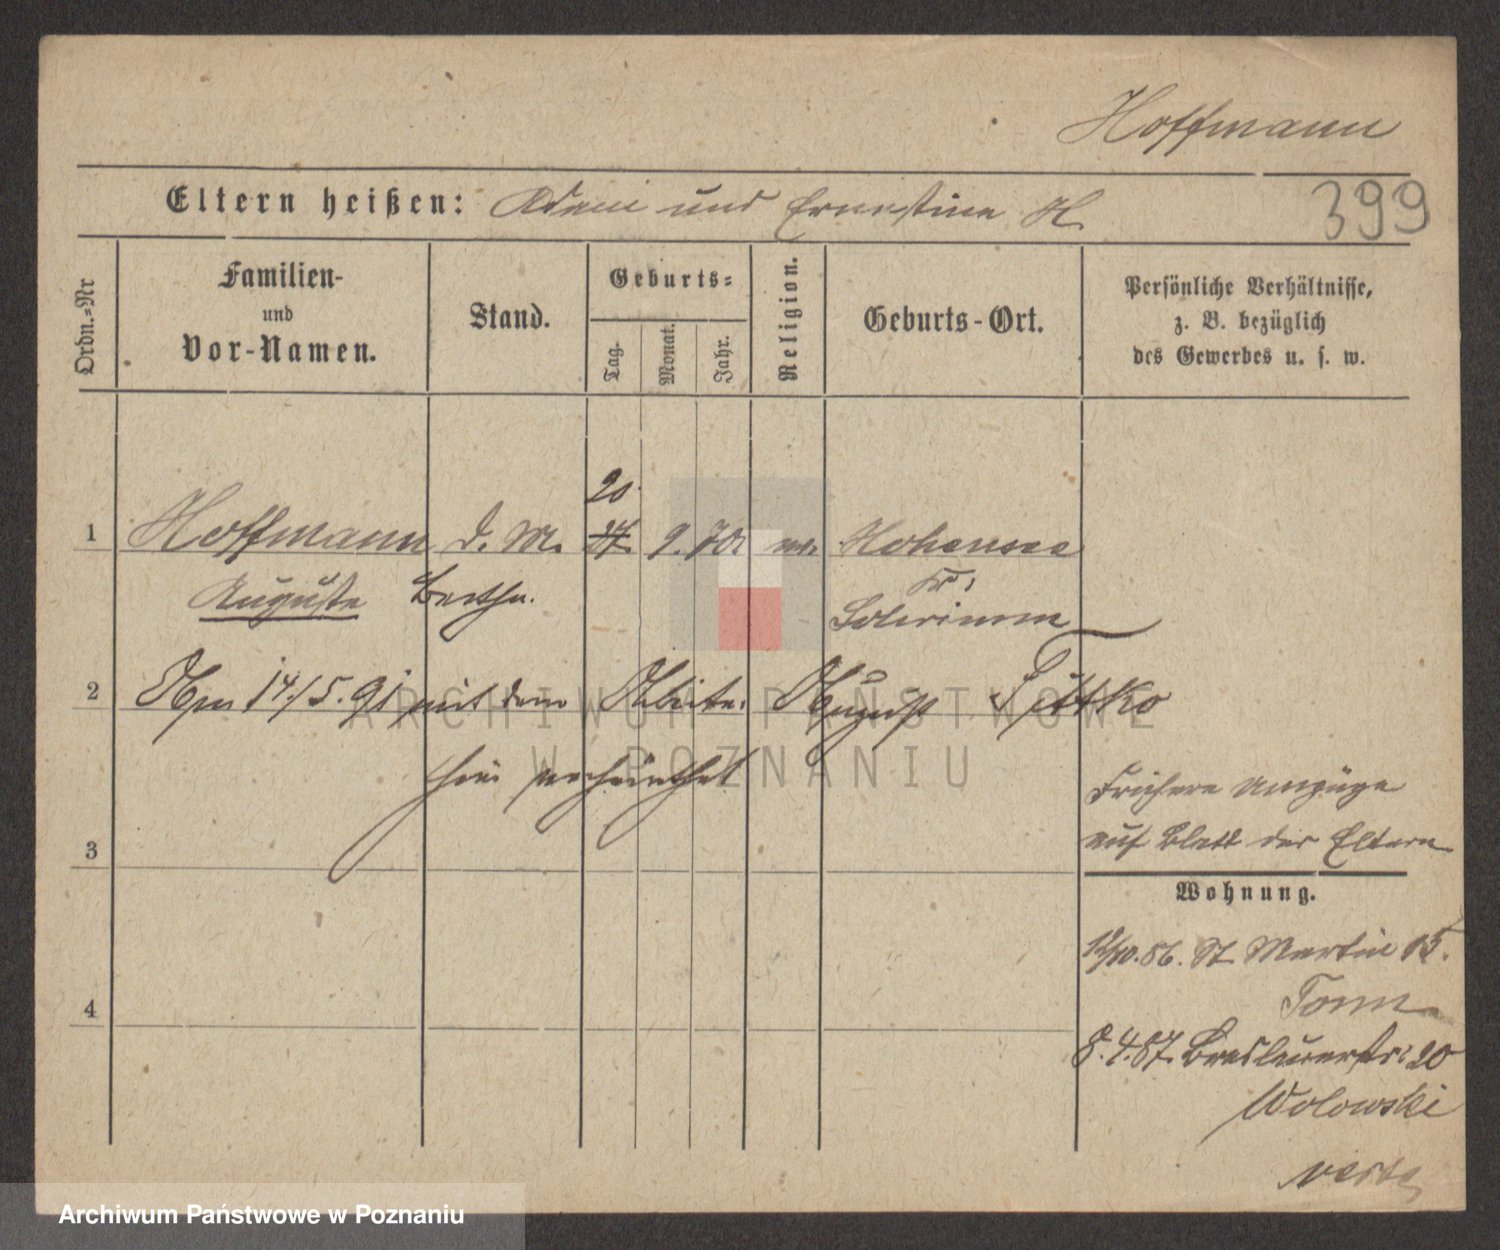 Hoffmann
Eltern heißen: Adam und Ernestine H.
399
Ordn.=Nr
Familien-
und
Vor-Namen.
Stand.
Geburts=
Tag.
Monat.
Jahr.
Religion.
Geburts-Ort.
Persönliche Verhältnisse,
z. B. bezüglich
des Gewerbes u. s. w.
20.
1 Hoffmann d. M. 27. 9. 70. Hohensee
Auguste Bertha. Kr:
Schrimm
2 Am 14/5.91 mit dem Arbeiter August Tittko
hier verheirathet
Frühere Umzüge
auf Blatt der Eltern
3
Wohnung.
12/10.86. St. Martin 15.
Tomm
4
8.4.87. Breslauerstr: 20
Wolowski
verte
ARCHIWUM PAŃSTWOWE
W POZNANIU
Archiwum Państwowe w Poznaniu